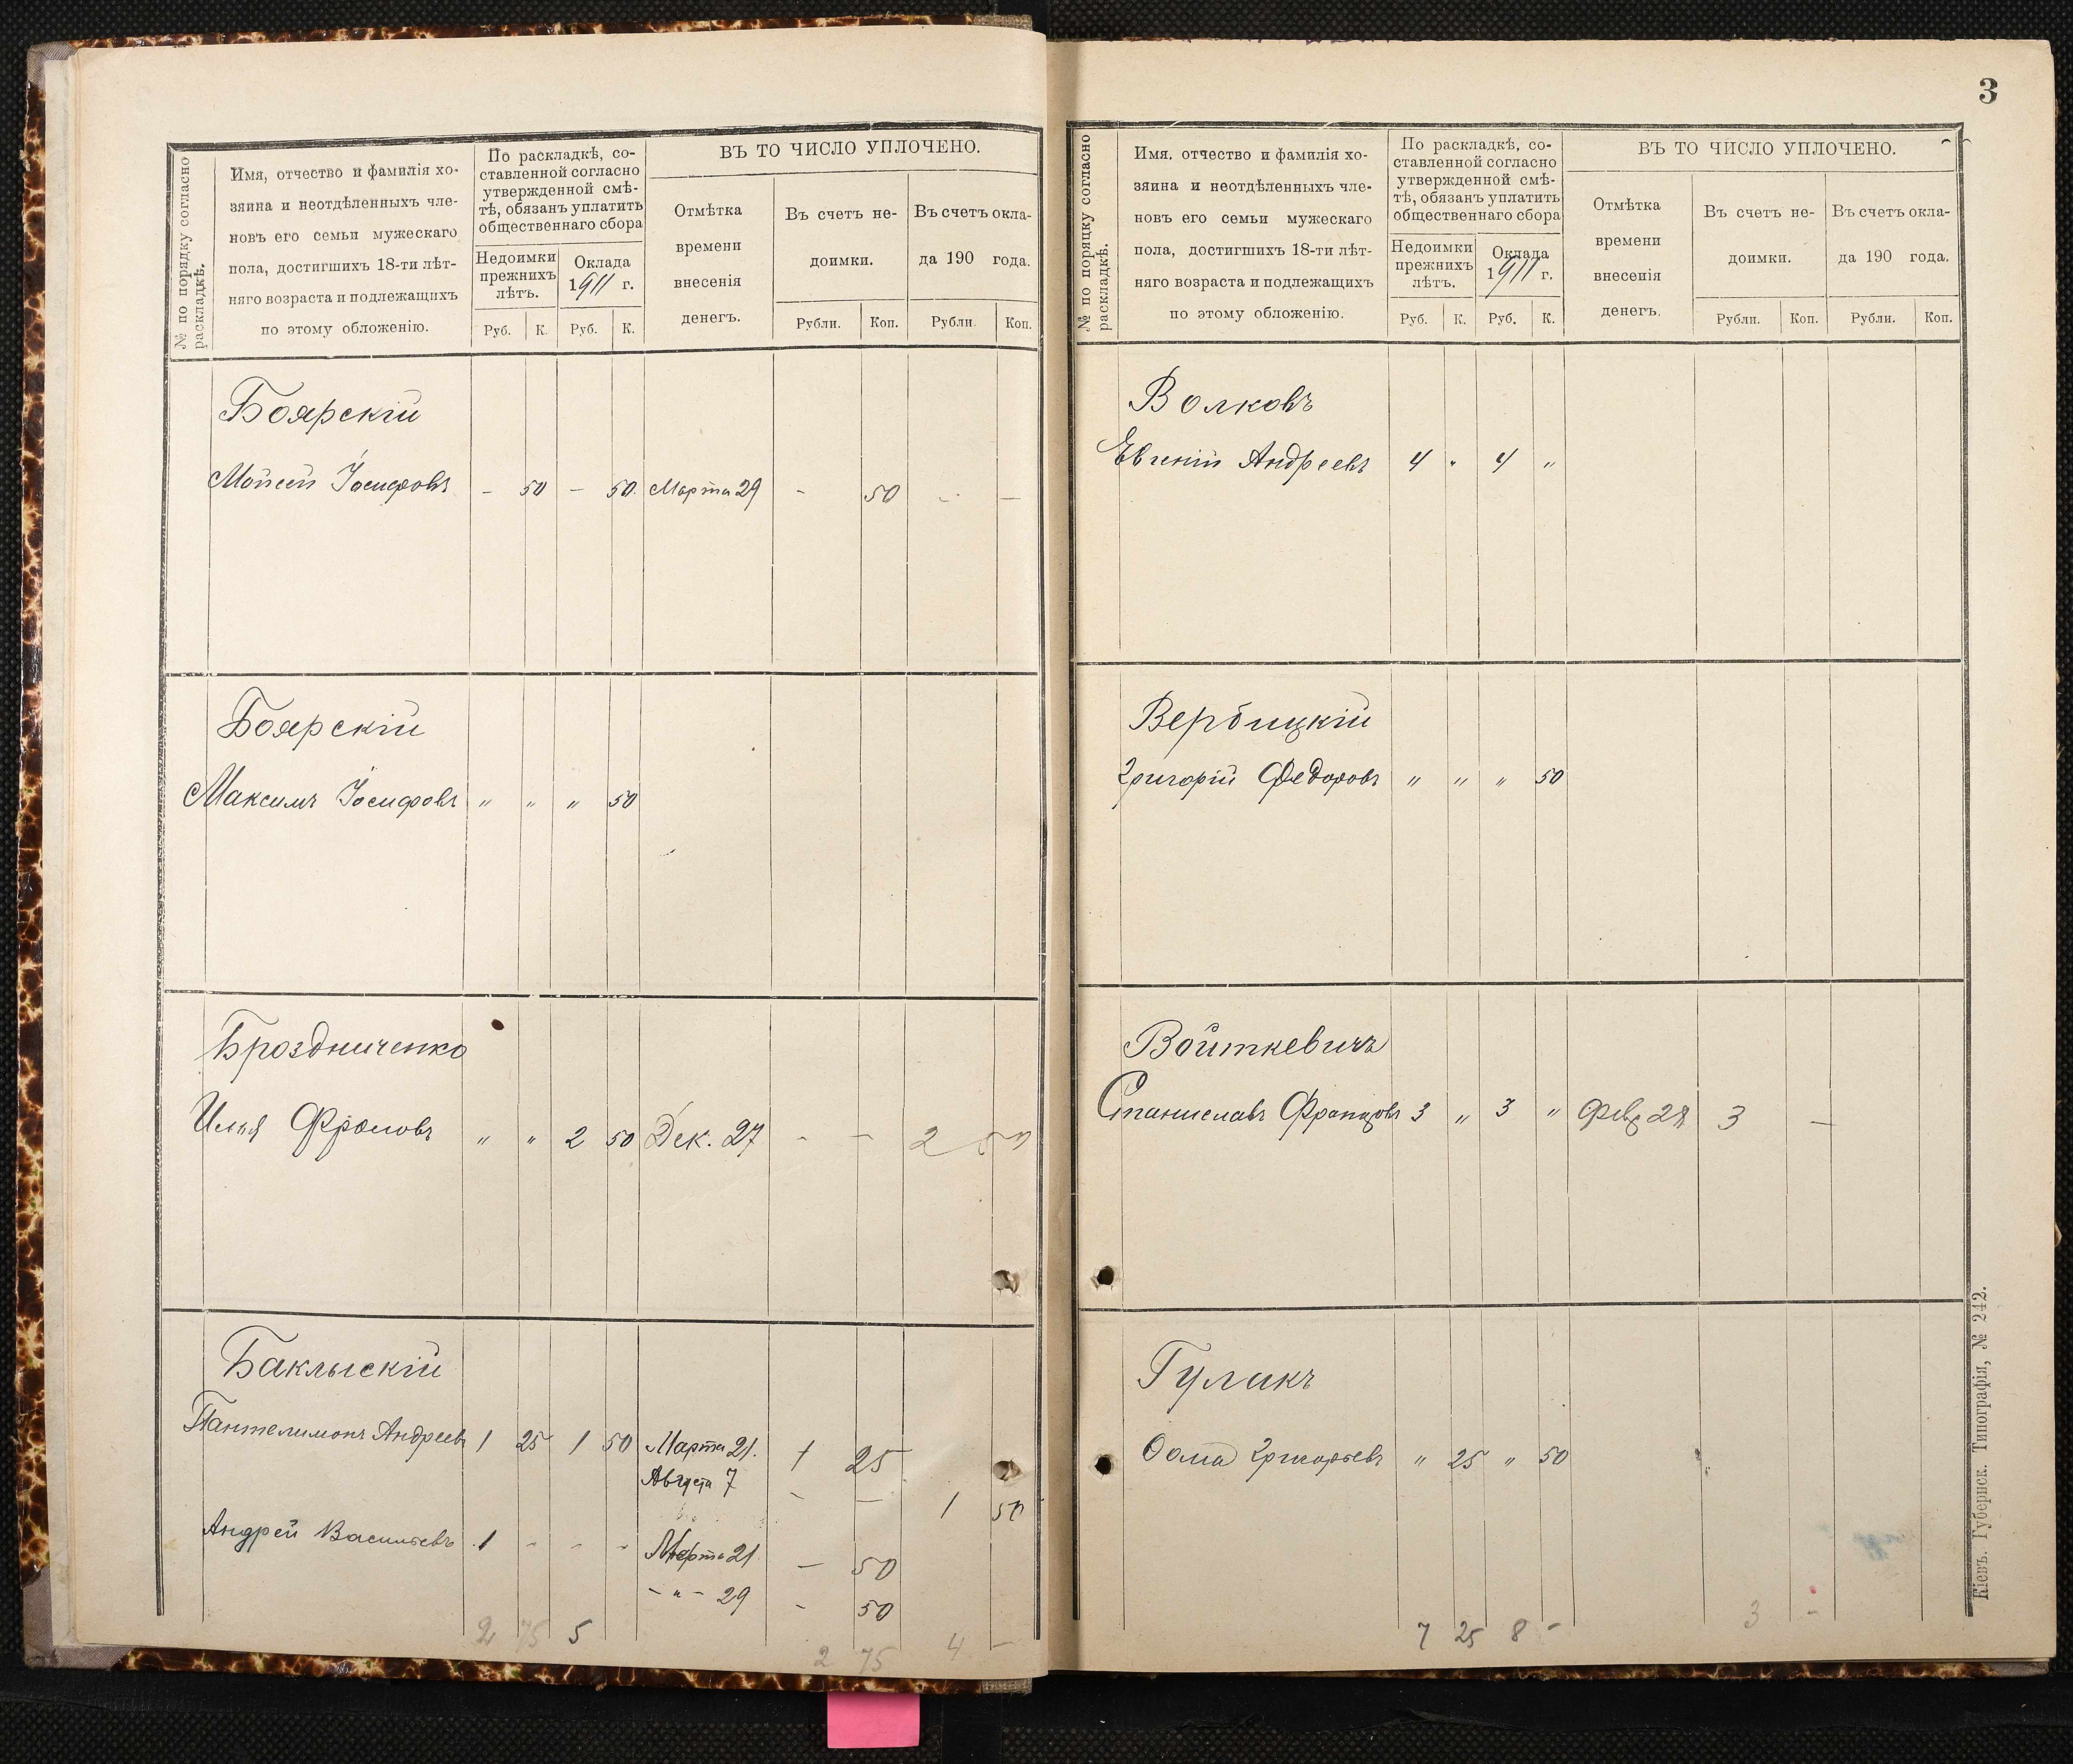 № по порядку согласно
раскладкѣ.
Имя, отчество и фамилія хо-
зяина и неотдѣленныхъ чле-
новъ его семьи мужескаго
пола, достигшихъ 18-ти лѣт-
няго возраста и подлежащихъ
по этому обложенію.
По раскладкѣ, со-
ставленной согласно
утвержденной смѣ-
тѣ, обязанъ уплатить
общественнаго сбора
Недоимки
прежнихъ
лѣтъ.
Оклада
1911 г.
Руб. К. Руб. К.
ВЪ ТО ЧИСЛО УПЛОЧЕНО.
Отмѣтка
времени
внесенія
денегъ.
Въ счетъ не-
доимки.
Въ счетъ окла-
да 190 года.
Рубли. Коп. Рубли. Коп.
Боярскій
Мойсей Іосифовъ – 50 – 50. Марта 29 – 50 – –
Боярскій
Максимъ Іосифовъ „ „ „ 50
Брозdниченко
Илья Фроловъ „ „ 2 50 Дек. 27 – – 2 50
Баклыскій
Пантелимонъ Андреевъ 1 25 1 50 Марта 21. 1 25
Августа 7 – – 1 50
Андрей Васильевъ 1 – – – Марта 21 – 50
– „ – 29 – 50
2 75 5
2 75 4 –
3
№ по порядку согласно
раскладкѣ.
Имя. отчество и фамилія хо-
зяина и неотдѣленныхъ чле-
новъ его семьи мужескаго
пола, достигшихъ 18-ти лѣт-
няго возраста и подлежащихъ
по этому обложенію.
По раскладкѣ, со-
ставленной согласно
утвержденной смѣ-
тѣ, обязанъ уплатить
общественнаго сбора
Недоимки
прежнихъ
лѣтъ.
Оклада
1911 г.
Руб. К. Руб. К.
ВЪ ТО ЧИСЛО УПЛОЧЕНО.
Отмѣтка
времени
внесенія
денегъ.
Въ счетъ не-
доимки.
Въ счетъ окла-
да 190 года.
Рубли. Коп. Рубли. Коп.
Волковъ
Евгеній Андреевъ 4 „ 4 „
Вербицкій
Григорій Федоровъ „ „ „ 50
Войткевичъ
Станиславъ Францовъ 3 „ 3 „ Фев 28 3 –
Гулакъ
Ѳома Григорьевъ „ 25 „ 50
7 25 8 – 3 –
Кіевъ. Губернск. Типографія, № 242.